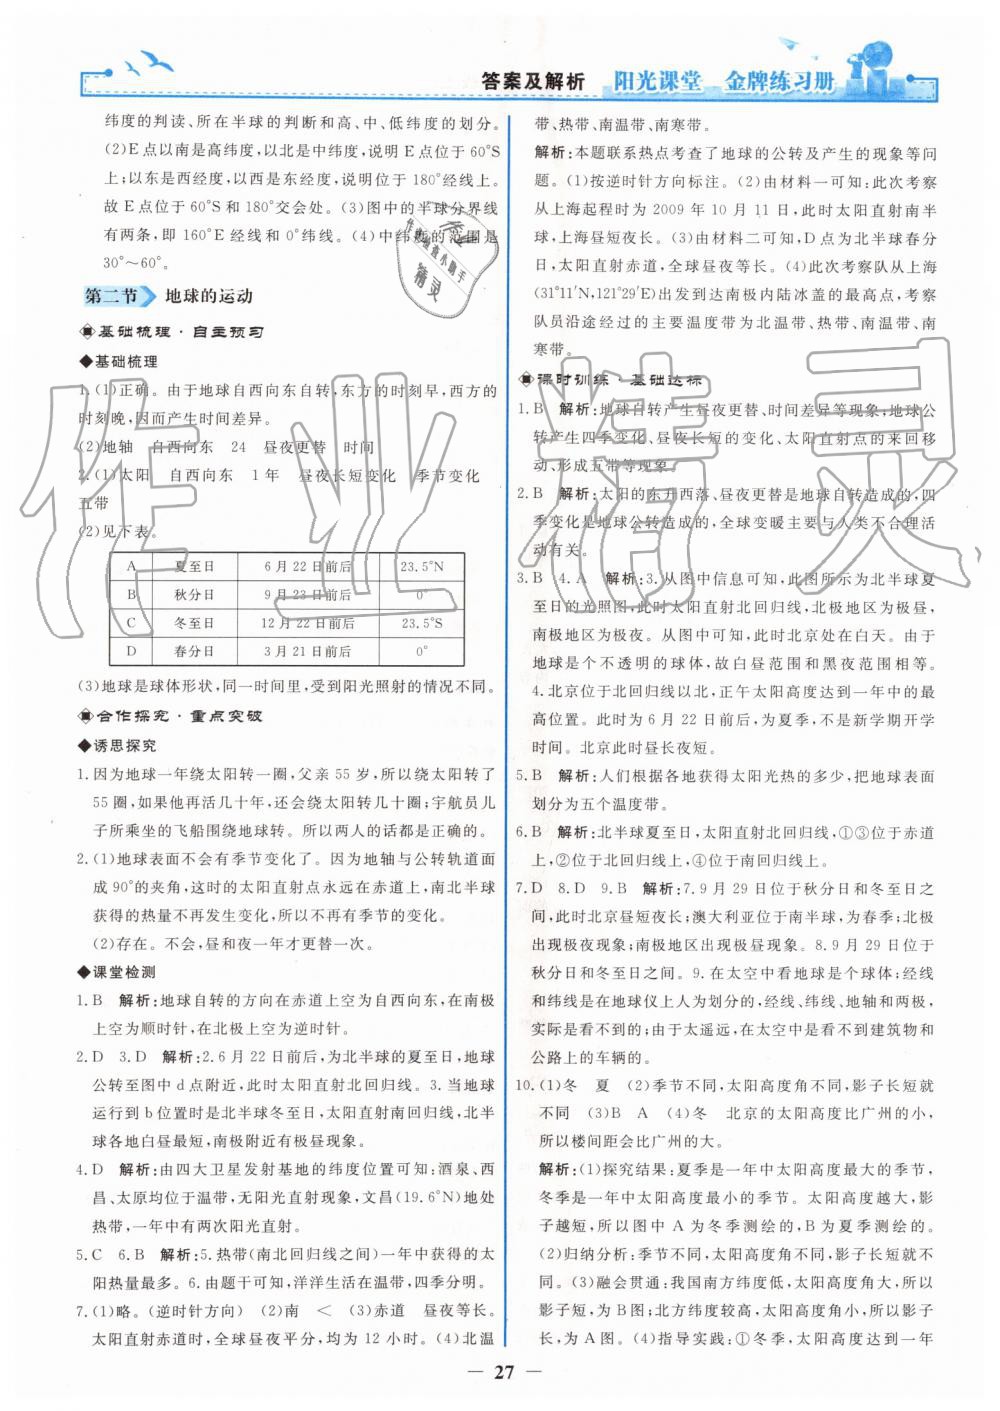 答案及解析 阳光课堂 金牌练习册
纬度的判读、所在半球的判断和高、中、低纬度的划分。
(2)E点以南是高纬度,以北是中纬度,说明E点位于60°S
上;以东是西经度,以西是东经度,说明位于180°经线上。
故E点位于60°S和180°交会处。(3)图中的半球分界线
有两条,即160°E经线和0°纬线。(4)中纬度的范围是
30°~60°。
第二节 地球的运动
基础梳理·自主预习
◆基础梳理
1.(1)正确。由于地球自西向东自转,东方的时刻早,西方的
时刻晚,因而产生时间差异。
(2)地轴 自西向东 24 昼夜更替 时间
2.(1)太阳 自西向东 1年 昼夜长短变化 季节变化
五带
(2)见下表。
A 夏至日 6月22日前后 23.5°N
B 秋分日 9月23日前后 0°
C 冬至日 12月22日前后 23.5°S
D 春分日 3月21日前后 0°
(3)地球是球体形状,同一时间里,受到阳光照射的情况不同。
合作探究·重点突破
◆诱思探究
1.因为地球一年绕太阳转一圈,父亲55岁,所以绕太阳转了
55圈,如果他再活几十年,还会绕太阳转几十圈;宇航员儿
子所乘坐的飞船围绕地球转。所以两人的话都是正确的。
2.(1)地球表面不会有季节变化了。因为地轴与公转轨道面
成90°的夹角,这时的太阳直射点永远在赤道,南北半球
获得的热量不再发生变化,所以不再有季节的变化。
(2)存在。不会,昼和夜一年才更替一次。
◆课堂检测
1.B 解析:地球自转的方向在赤道上空为自西向东,在南极
上空为顺时针,在北极上空为逆时针。
2.D 3.D 解析:2.6月22日前后,为北半球的夏至日,地球
公转至图中d点附近,此时太阳直射北回归线。3.当地球
运行到b位置时是北半球冬至日,太阳直射南回归线,北半
球各地白昼最短,南极附近有极昼现象。
4.D 解析:由四大卫星发射基地的纬度位置可知:酒泉、西
昌、太原均位于温带,无阳光直射现象,文昌(19.6°N)地处
热带,一年中有两次阳光直射。
5.C 6.B 解析:5.热带(南北回归线之间)一年中获得的太
阳热量最多。6.由题干可知,洋洋生活在温带,四季分明。
7.(1)略。(逆时针方向) (2)南 < (3)赤道 昼夜等长。
太阳直射赤道时,全球昼夜平分,均为12小时。(4)北温
带、热带、南温带、南寒带。
解析:本题联系热点考查了地球的公转及产生的现象等问
题。(1)按逆时针方向标注。(2)由材料一可知:此次考察
从上海起程时为2009年10月11日,此时太阳直射南半
球,上海昼短夜长。(3)由材料二可知,D点为北半球春分
日,太阳直射赤道,全球昼夜等长。(4)考察队从上海
(31°11′N,121°29′E)出发到达南极内陆冰盖的最高点,考察
队员沿途经过的主要温度带为北温带、热带、南温带、南
寒带。
课时训练·基础达标
1.B 解析:地球自转产生昼夜更替、时间差异等现象;地球公
转产生四季变化、昼夜长短的变化、太阳直射点的来回移
动、形成五带等现象。
2.B 解析:太阳的东升西落、昼夜更替是地球自转造成的,四
季变化是地球公转造成的,全球变暖主要与人类不合理活
动有关。
3.B 4.A 解析:3.从图中信息可知,此图所示为北半球夏
至日的光照图,此时太阳直射北回归线,北极地区为极昼,
南极地区为极夜。从图中可知,此时北京处在白天。由于
地球是个不透明的球体,故白昼范围和黑夜范围相等。
4.北京位于北回归线以北,正午太阳高度达到一年中的最
高位置。此时为6月22日前后,为夏季,不是新学期开学
时间。北京此时昼长夜短。
5.B 解析:人们根据各地获得太阳光热的多少,把地球表面
划分为五个温度带。
6.B 解析:北半球夏至日,太阳直射北回归线,①③位于赤道
上,②位于北回归线上,④位于南回归线上。
7.D 8.D 9.B 解析:7.9月29日位于秋分日和冬至日之
间,此时北京昼短夜长;澳大利亚位于南半球,为春季;北极
出现极夜现象;南极地区出现极昼现象。8.9月29日位于
秋分日和冬至日之间。9.在太空中看地球是个球体;经线
和纬线是在地球仪上人为划分的,经线、纬线、地轴和两极,
实际是看不到的;由于太遥远,在太空中是看不到建筑物和
公路上的车辆的。
10.(1)冬 夏 (2)季节不同,太阳高度角不同,影子长短就
不同 (3)B A (4)冬 北京的太阳高度比广州的小,
所以楼间距会比广州的大。
解析:(1)探究结果:夏季是一年中太阳高度最大的季节,
冬季是一年中太阳高度最小的季节。太阳高度越大,影
子越短,所以图中A为冬季测绘的,B为夏季测绘的。
(2)归纳分析:季节不同,太阳高度角不同,影子长短就不
同。(3)融会贯通:我国南方纬度低,太阳高度角大,所以
影子短,为B图;北方纬度较高,太阳高度角小,所以影子
长,为A图。(4)指导实践:①冬季,太阳高度达到一年中
— 27 —
作业精灵